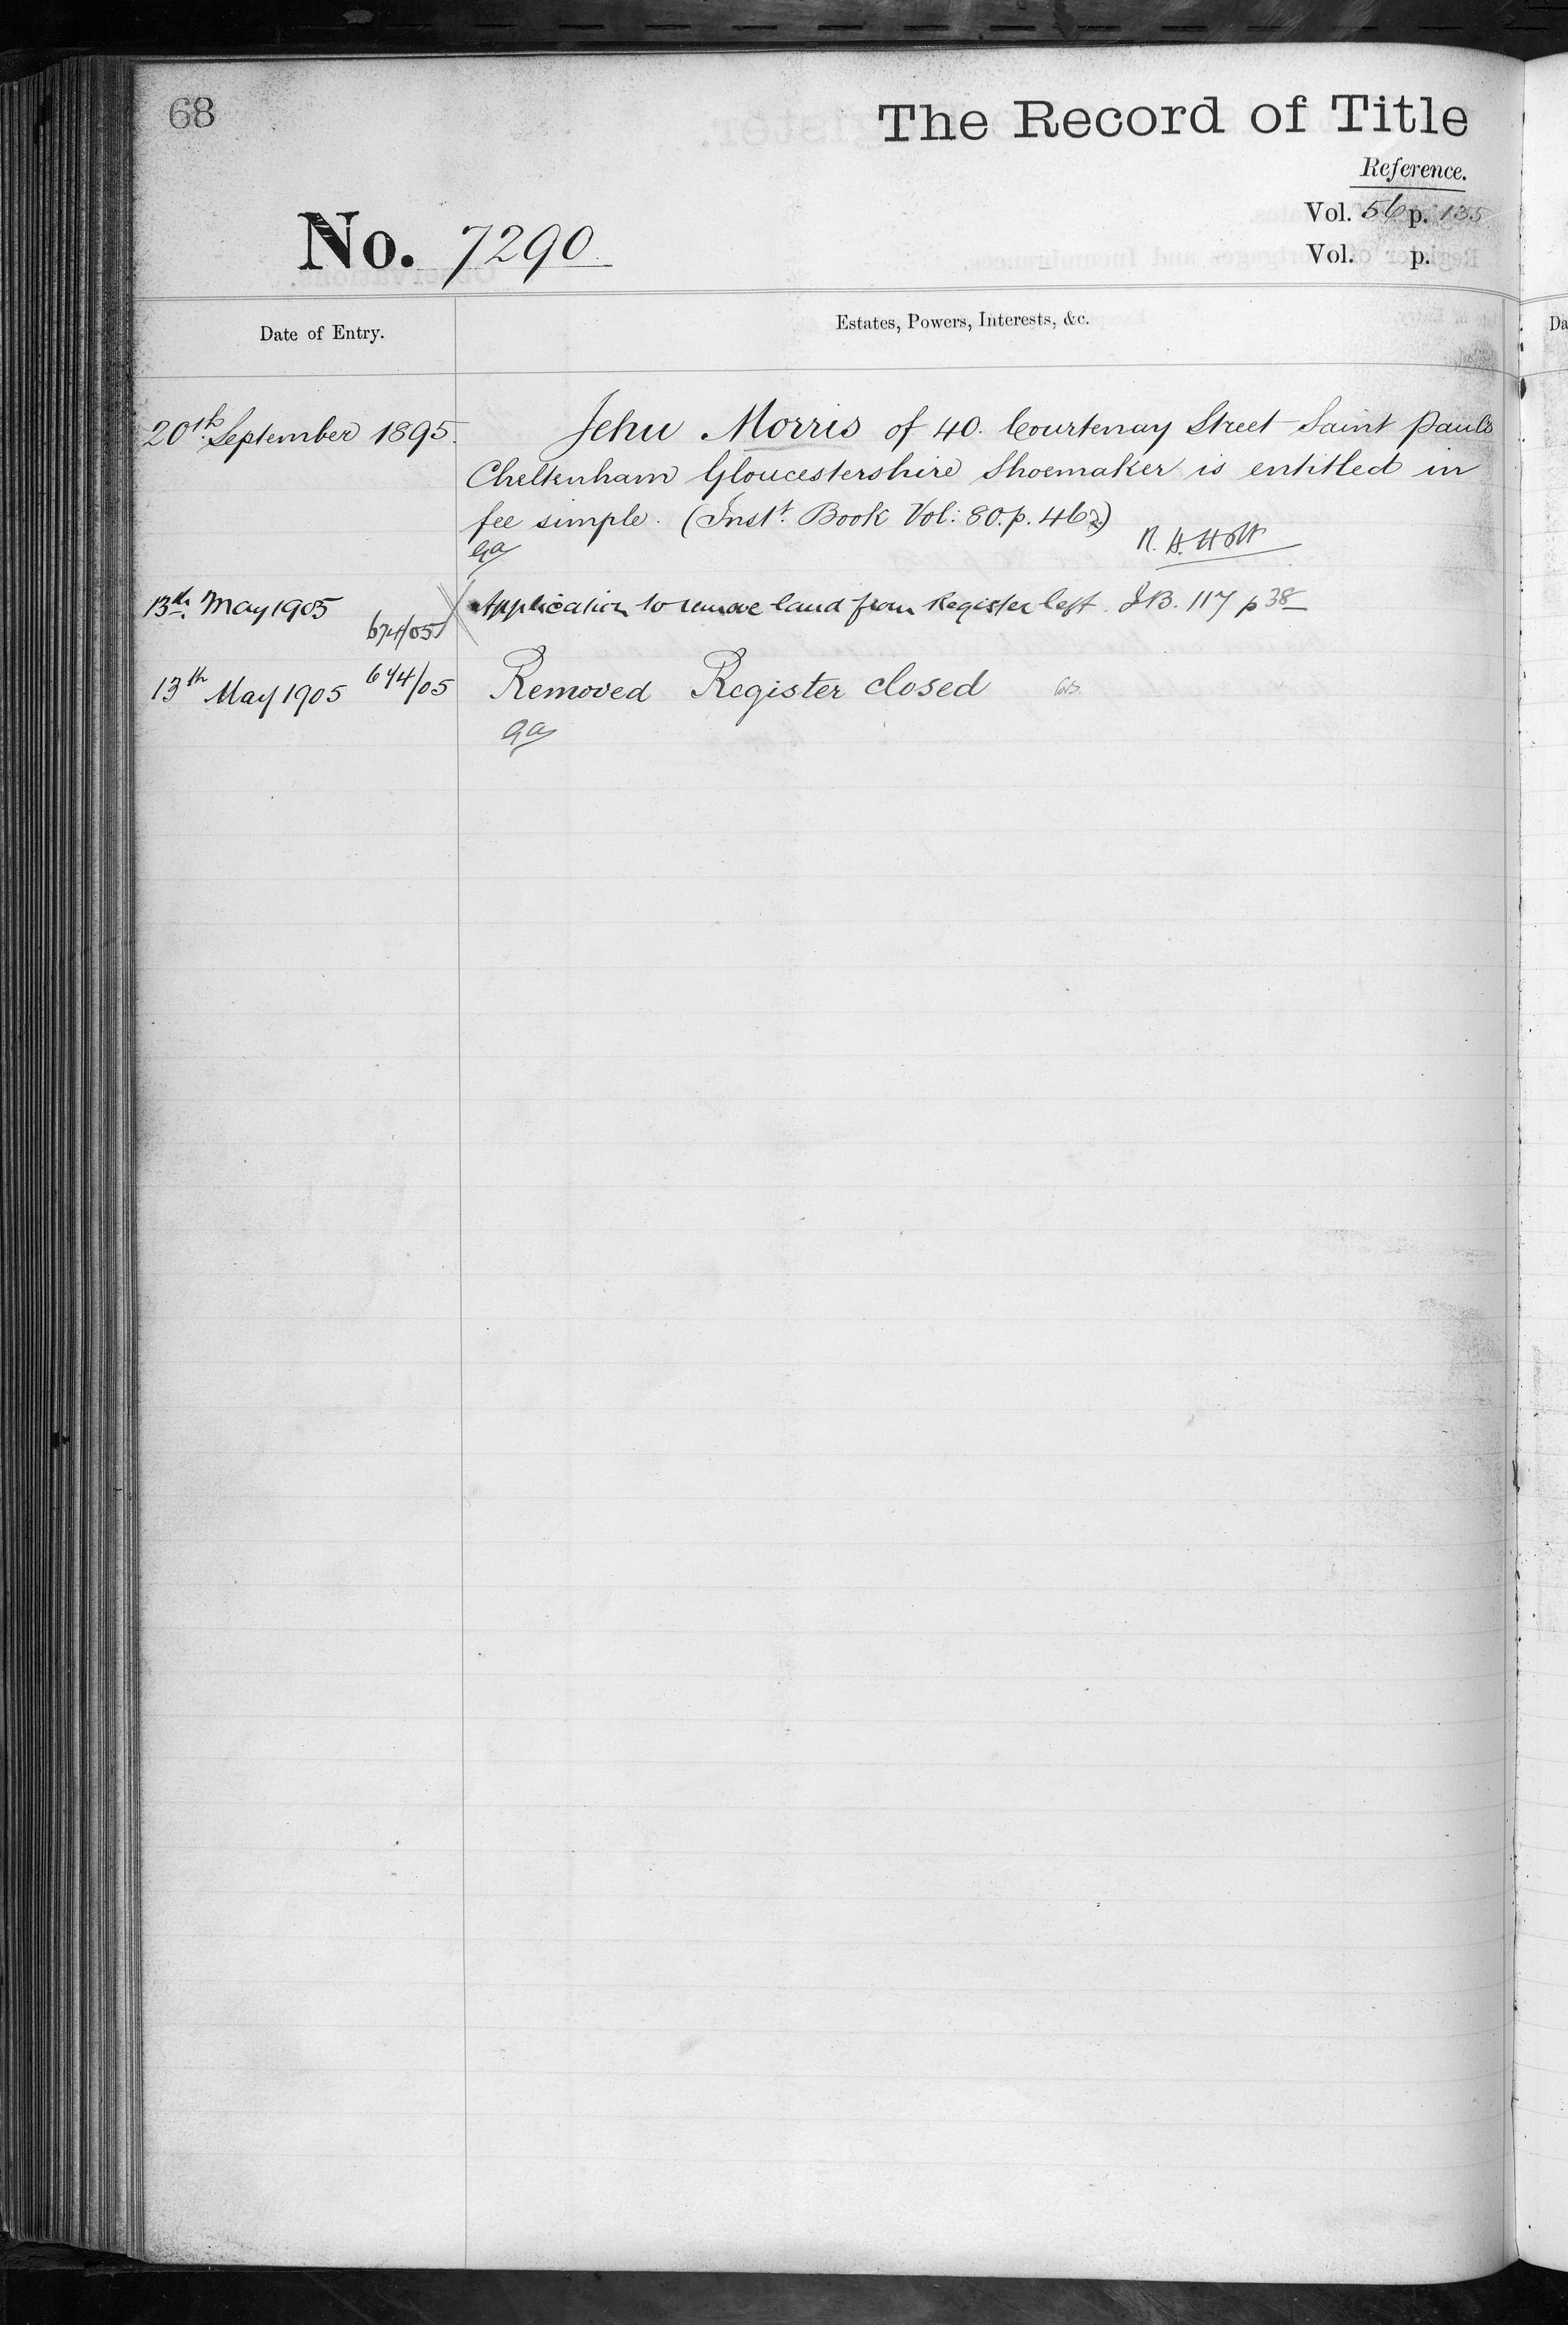 68
The Record of Title
Reference.
Vol. 56 p. 135
No. 7290
Vol. p.
Date of Entry.
Estates, Powers, Interests, &c.
20th September 1895.
Jehu Morris of 40. Courtenay Street Saint Paul's
Cheltenham Gloucestershire Shoemaker is entitled in
fee simple. (Inst. Book Vol: 80. p. 462)
Ga
13th May 1905
674/05
Application to remove land from Register left. I B. 117 p 38
13th May 1905 674/05
Removed Register closed
Ga
Da